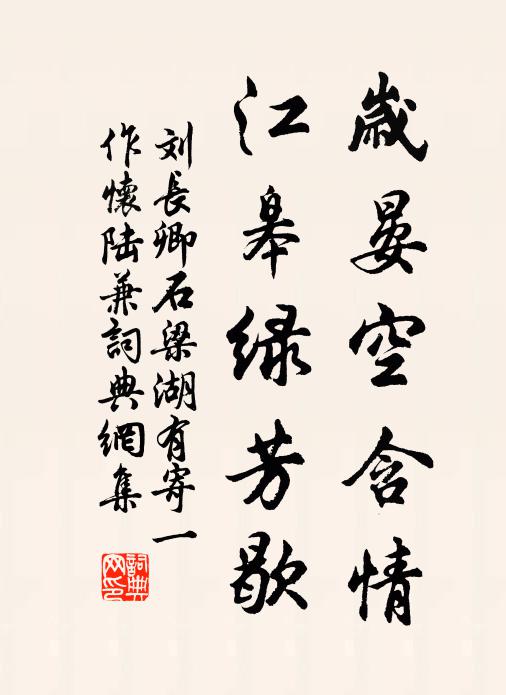 歲晏空含情
江皋綠芳歇
刘長卿石梁湖有寄一
作懷陆兼詞典網集
詞典
网印